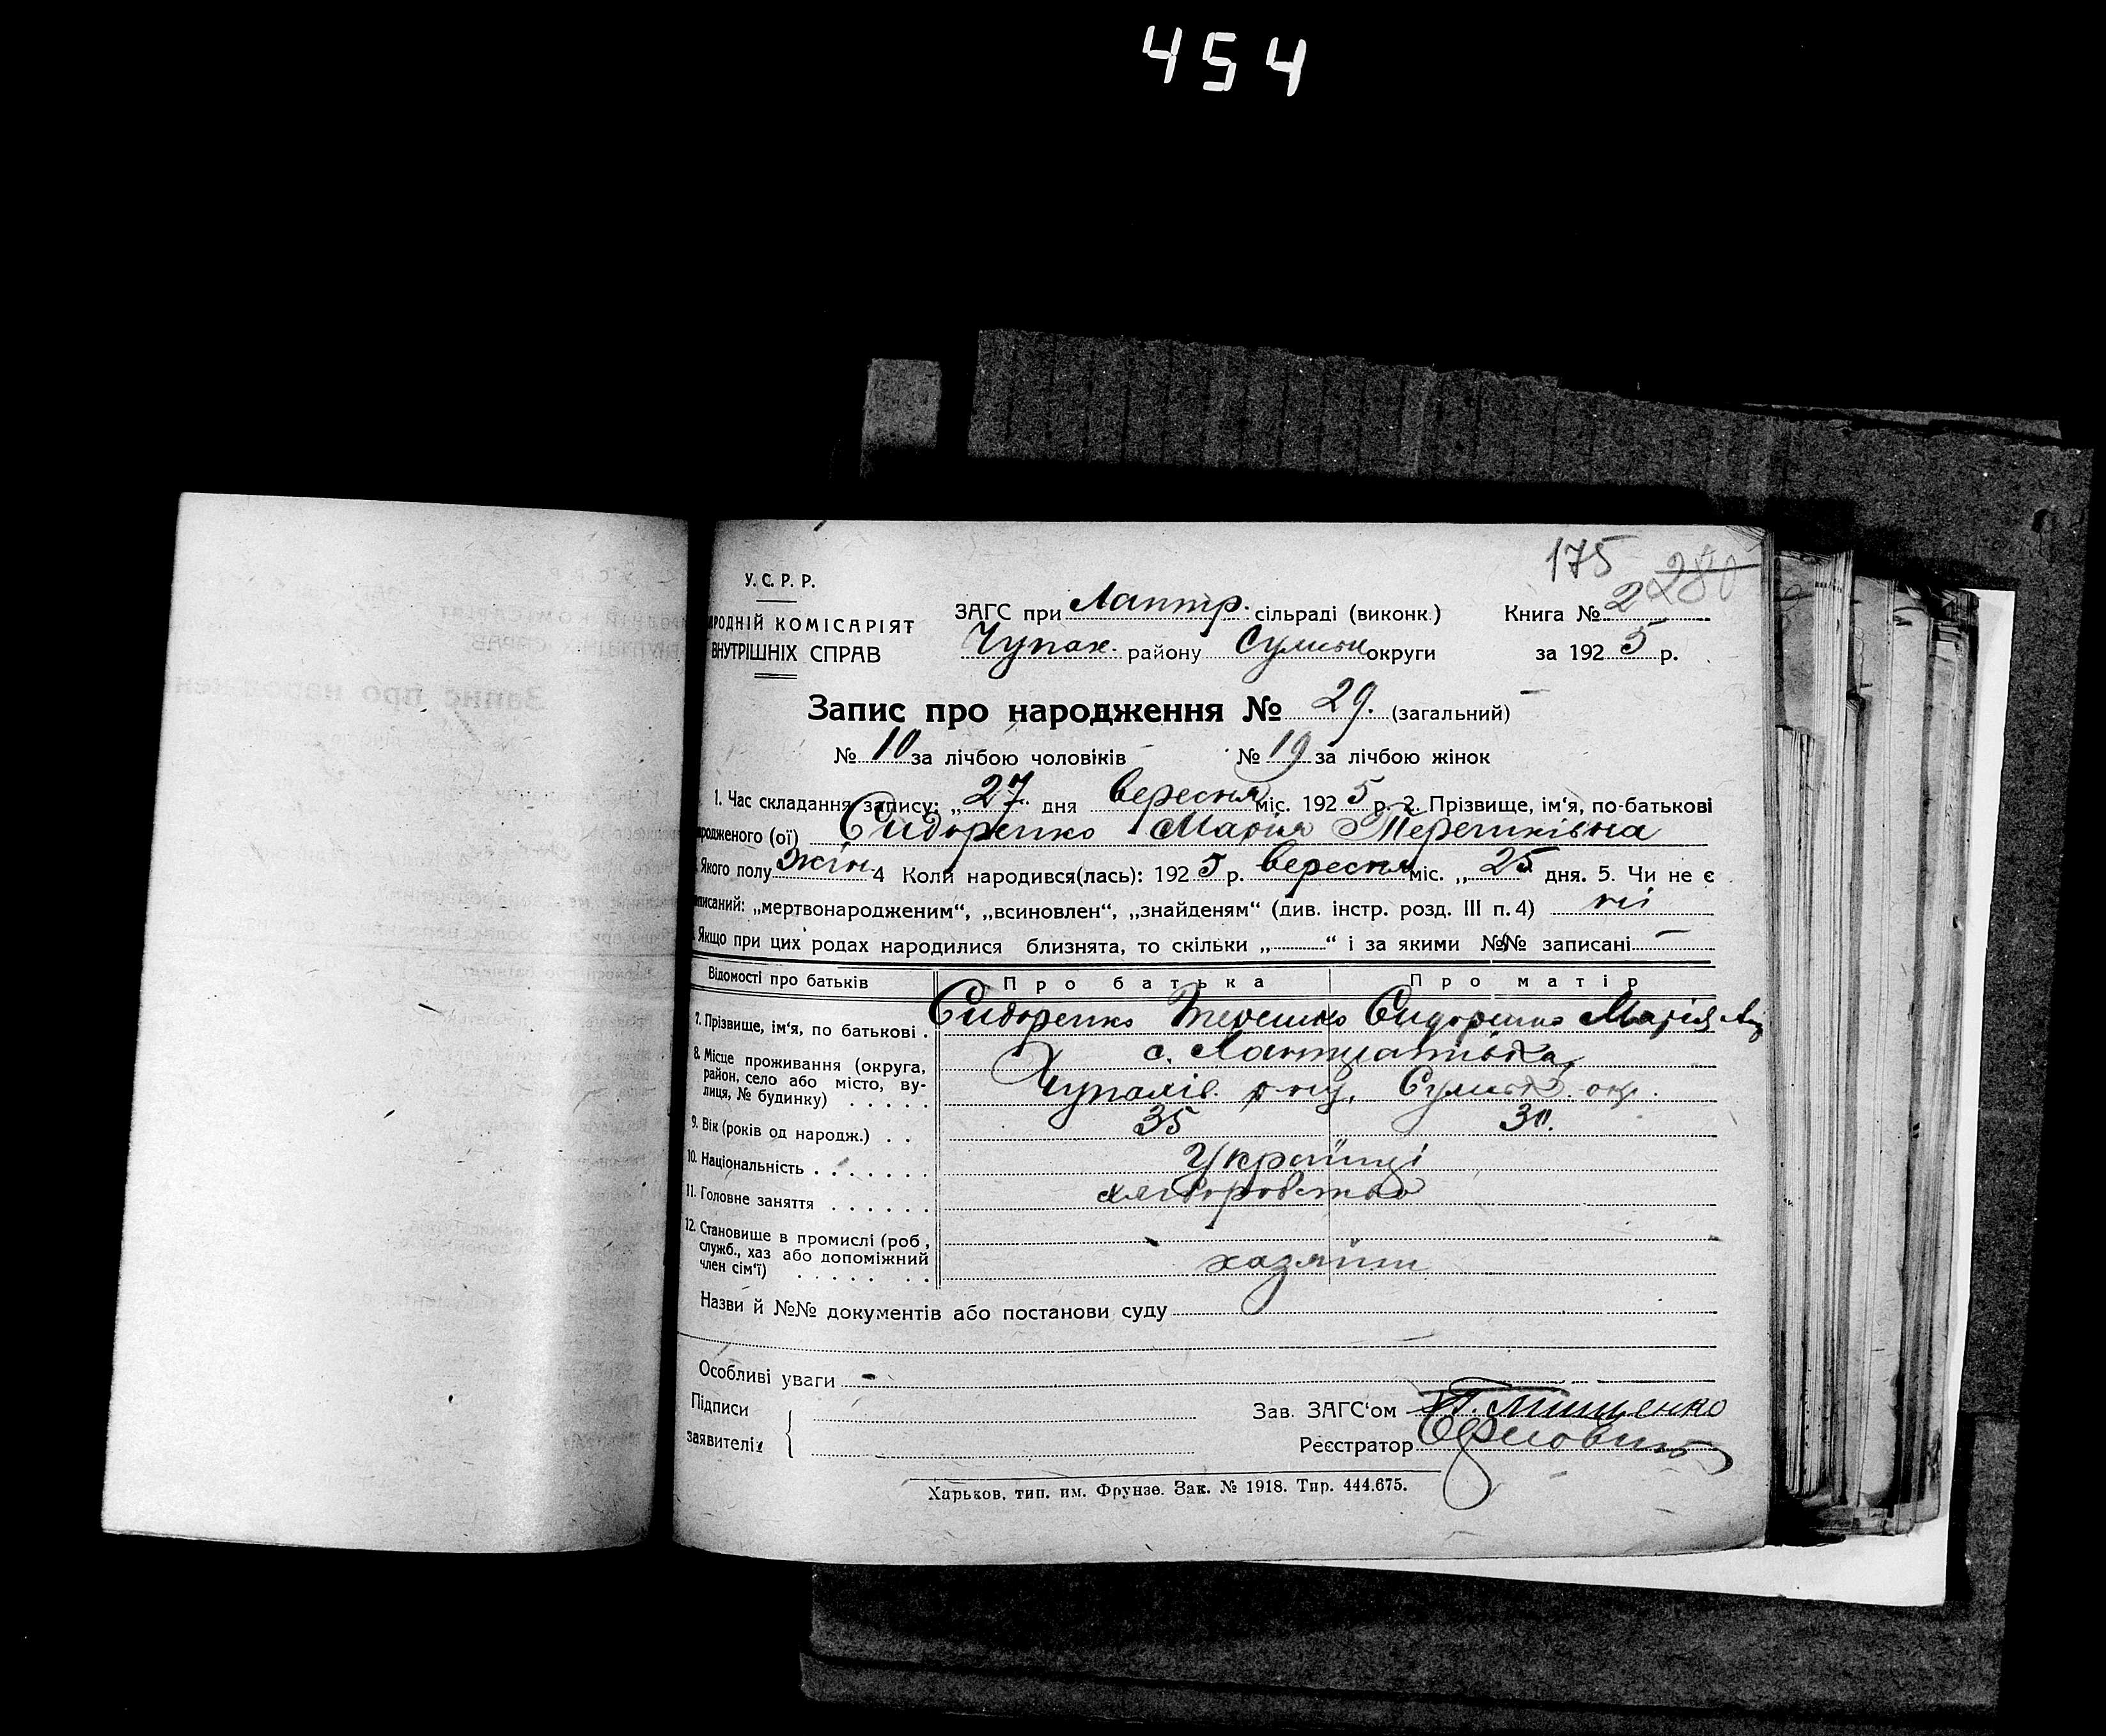 454
175 280
У. С. Р. Р.
РОДНІЙ КОМІСАРІЯТ
ВНУТРІШНІХ СПРАВ
ЗАГС при Лаптр. сільраді (виконк.) Книга № 2
Чупах. району Сумськ округи за 1925 р.
Запис про народження № 29. (загальний)
№ 10 за лічбою чоловіків № 19 за лічбою жінок
1. Час складання запису: „27 дня вересня міс. 1925 р. 2. Прізвище, ім‘я, по-батькові
родженого (ої) Сидоренко Марія Терешківна
Якого полу жін 4 Коли народився(лась): 1925 р. вересня міс. „25 дня. 5. Чи не є
писаний: „мертвонародженим“, „всиновлен“, „знайденям“ (див. інстр. розд. III п. 4) ні
Якщо при цих родах народилися близнята, то скільки „ “ і за якими №№ записані —
Відомості про батьків Про батька Про матір
7. Прізвище, ім‘я, по батькові . Сидоренко Терешко Сидоренко Марія
8. Місце проживання (округа, с.
район, село або місто, ву-
лиця, № будинку) . . . . . Чупахів. р-ну, Сумськ. окр.
9. Вік (років од народж.) . . 35 30.
10. Національність . . . . . . . Українці
11. Головне заняття . . . . . . хліборобство
12. Становище в промислі (роб.,
служб., хаз або допоміжний
член сім‘ї) . . . . . . . хазяїни
Назви й №№ документів або постанови суду
Особливі уваги -
Підписи
заявителів
Зав. ЗАГС‘ом Мищенко
Реєстратор
Харьков, тип. им. Фрунзе. Зак. № 1918. Тир. 444.675.